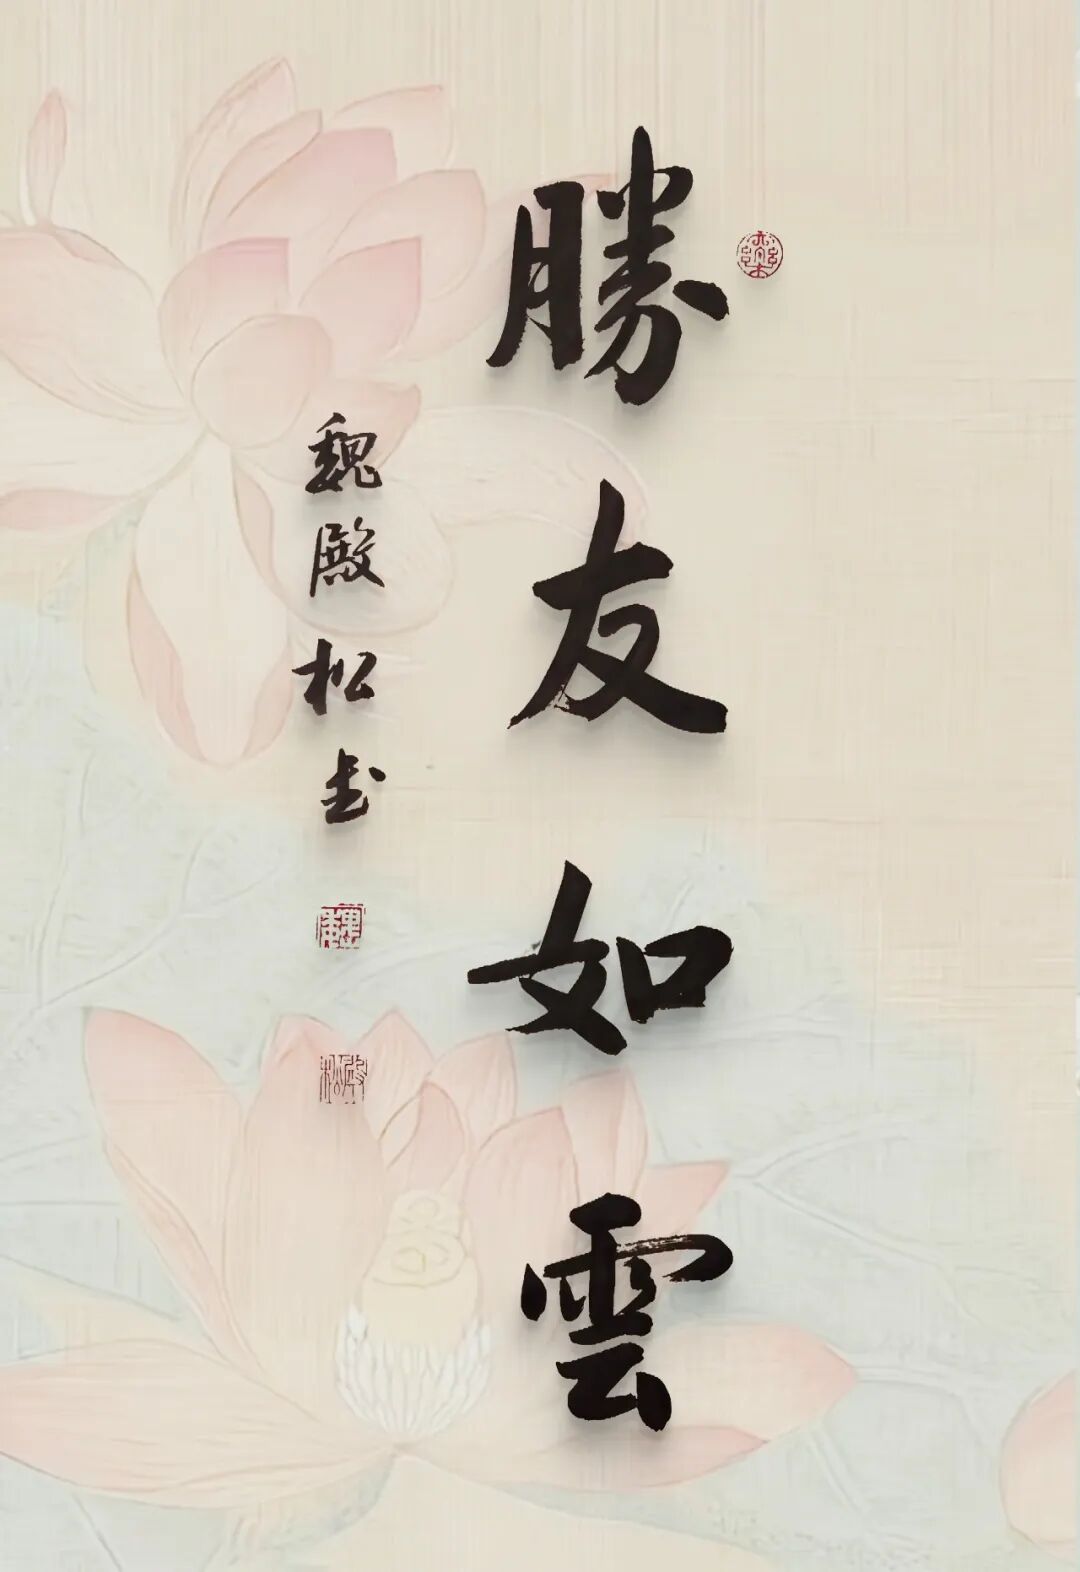 勝友如雲
魏殿松书
魏
殿松